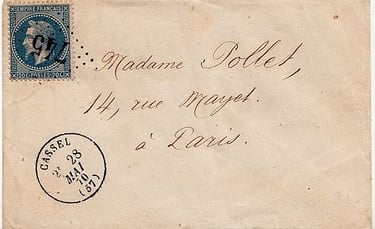 EMPIRE FRANÇAIS
Madame Pollet,
14, rue Mayet.
à Paris.
CASSEL
28
MAI
70
(57)